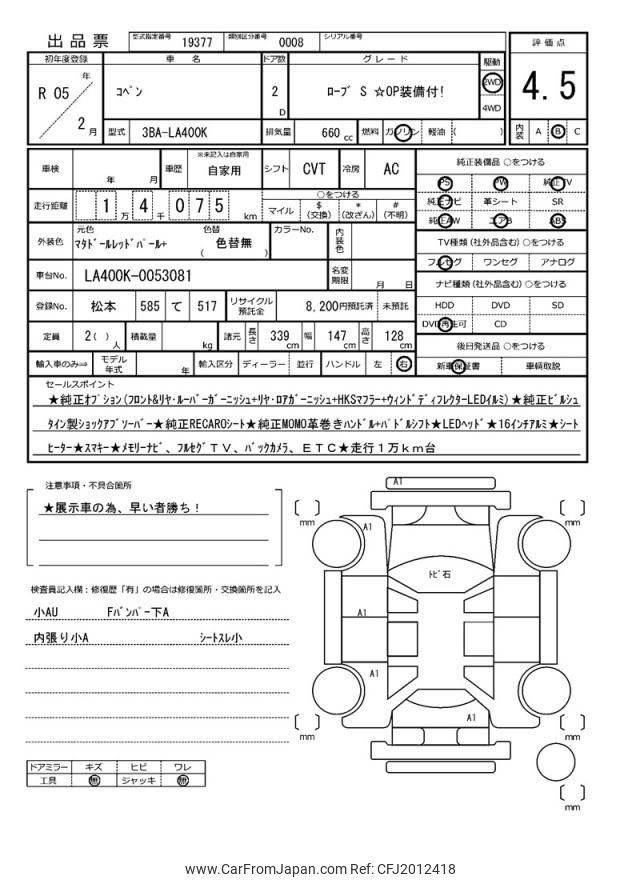 出品票
型式指定番号 19377 類別区分番号 0008 シリアル番号
評価点
初年度登録 車名 ドア数 グレード 駆動
R 05 年 2 月
コペン
2 D
ローブ S ☆OP装備付!
2WD
4WD
4.5
型式 3BA-LA400K 排気量 660 cc 燃料 ガソリン 軽油 ( )
内装 A B C
車検 年 月 車歴 ※未記入は自家用 自家用 シフト CVT 冷房 AC
純正装備品 ○をつける
PS PW 純正TV
純正ナビ 革シート SR
純正AW エアB ABS
走行距離 1 万 4 千 0 7 5 km
○をつける
マイル $ (交換) * (改ざん) # (不明)
外装色 元色 マタドールレッドパール+ 色替 ( 色替無 ) カラーNo. 内装色
TV種類 (社外品含む) ○をつける
フルセグ ワンセグ アナログ
車台No. LA400K-0053081 名変期限 月 日
ナビ種類 (社外品含む) ○をつける
HDD DVD SD
DVD再生可 CD
登録No. 松本 585 て 517 リサイクル預託金 8,200円預託済 未預託
定員 2( ) 人 積載量 kg 諸元 長さ 339 cm 幅 147 cm 高さ 128 cm
後日発送品 ○をつける
新車保証書 車輌取説
輸入車のみ⇒ モデル年式 年 輸入区分 ディーラー 並行 ハンドル 左 右
セールスポイント
★純正オプション(フロント&リヤ・ルーバーガーニッシュ+リヤ・ロアガーニッシュ+HKSマフラー+ウィンドディフレクターLEDイルミ)★純正ビルシュ
タイン製ショックアブソーバー★純正RECAROシート★純正MOMO革巻きハンドル+パドルシフト★LEDヘッド★16インチアルミ★シート
ヒーター★スマキー★メモリーナビ、フルセグTV、バックカメラ、ETC★走行1万km台
注意事項・不具合箇所
★展示車の為、早い者勝ち!
検査員記入欄:修復歴「有」の場合は修復箇所・交換箇所を記入
小AU Fバンパー下A
内張り小A シートスレ小
ドアミラー キズ ヒビ ワレ
工具 無 ジャッキ 無
A1
A1
A1
トビ石
A1
A1
A1
mm
mm
mm
mm
mm
www.CarFromJapan.com Ref: CFJ2012418